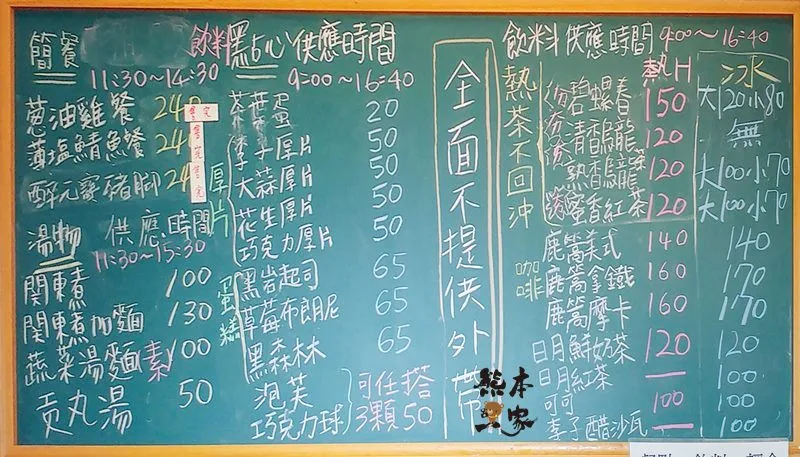 簡餐
11:30～14:30
蔥油雞餐 24
薄塩鯖魚餐 24
醉元寶豬腳 24
售完
售完
售完
湯物 供應時間
11:30～15:30
関東煮 100
関東煮加麵 130
蔬菜湯麵 素 100
貢丸湯 50
飲料點心供應時間
9:00～16:40
茶葉蛋 20
厚片
李子厚片 50
大蒜厚片 50
花生厚片 50
巧克力厚片 50
蛋糕
黑岩起司 65
草莓布朗尼 65
黑森林 65
泡芙
巧克力球
可任搭
3顆50
全面不提供外帶
飲料供應時間 9:00～16:40
熱H 冰
熱茶不回沖
碧螺春 150 大120小80
清香烏龍 120 無
熱香烏龍茶 120 大100小70
蜜香紅茶 120 大100小70
咖啡
鹿篙美式 140 140
鹿篙拿鐵 160 170
鹿篙摩卡 160 170
日月鮮奶茶 120 120
日月紅茶 — 100
可可 100 100
李子醋沙瓦 — 100
熊本一家